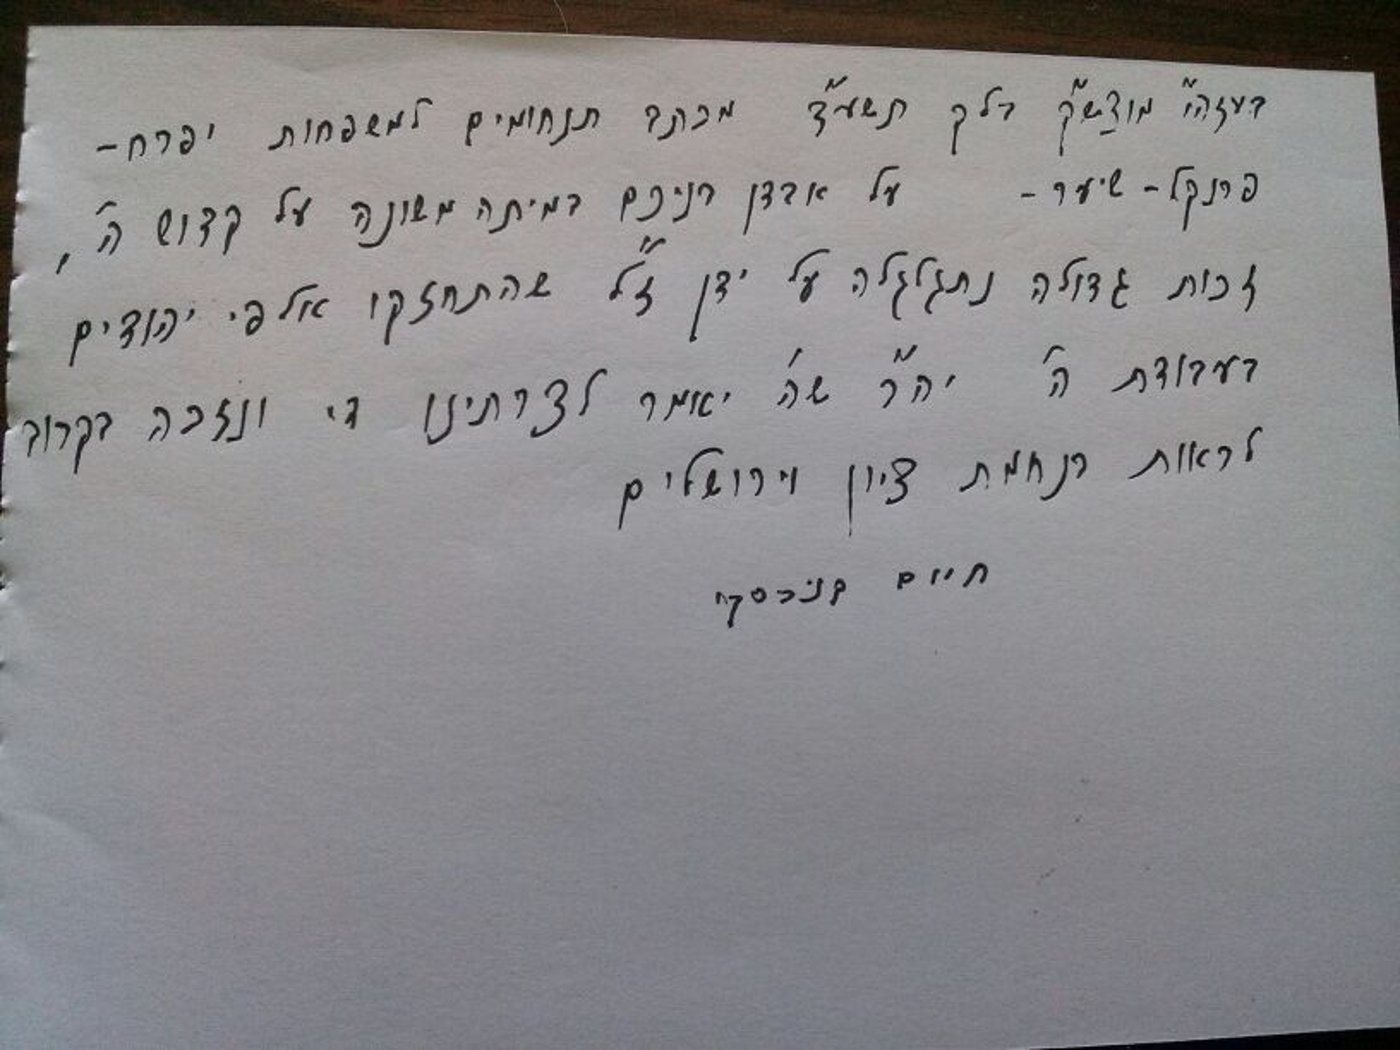 בעזהי"י מוצש"ק בלק תשע"ד מכתב תנחומים למשפחות יפרח -
פרנקל - שיער - על אבדן בניכם במיתה משונה על קדוש ה',
זכות גדולה נתגלגלה על ידן ז"ל שהתחזקו אלפי יהודים
בעבודת ה' יה"ר שה' יאמר לצרתינו די ונזכה בקרוב
לראות בנחמת ציון וירושלים
חיים